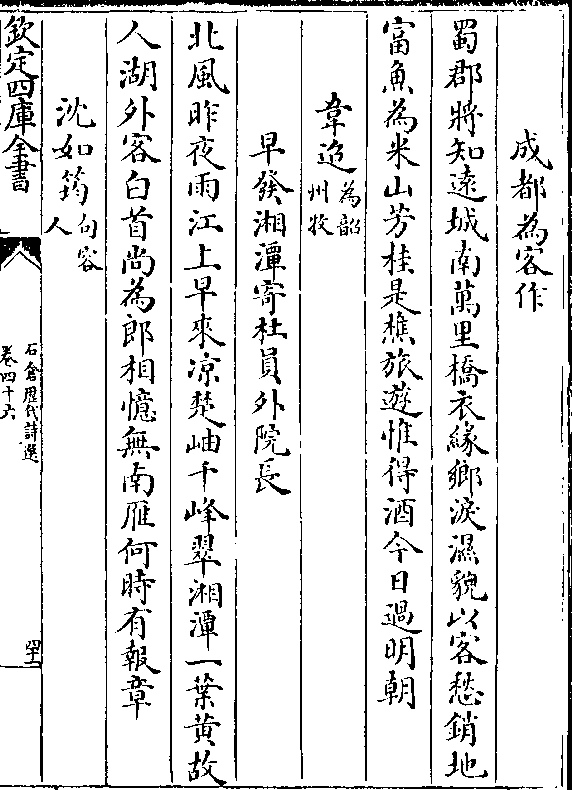 成都為客作
蜀郡將知逺城南萬里橋衣緣鄉淚濕貌以客愁銷地
富魚為米山芳桂是樵旅遊惟得酒今日過明朝
韋迢為韶州牧
早發湘潭寄杜員外院長
北風昨夜雨江上早來凉楚岫千峰翠湘潭一葉黄故
人湖外客白首尚為郎相憶無南雁何時有報章
沈如筠句容人
欽定四庫全書
石倉歴代詩選
卷四十六